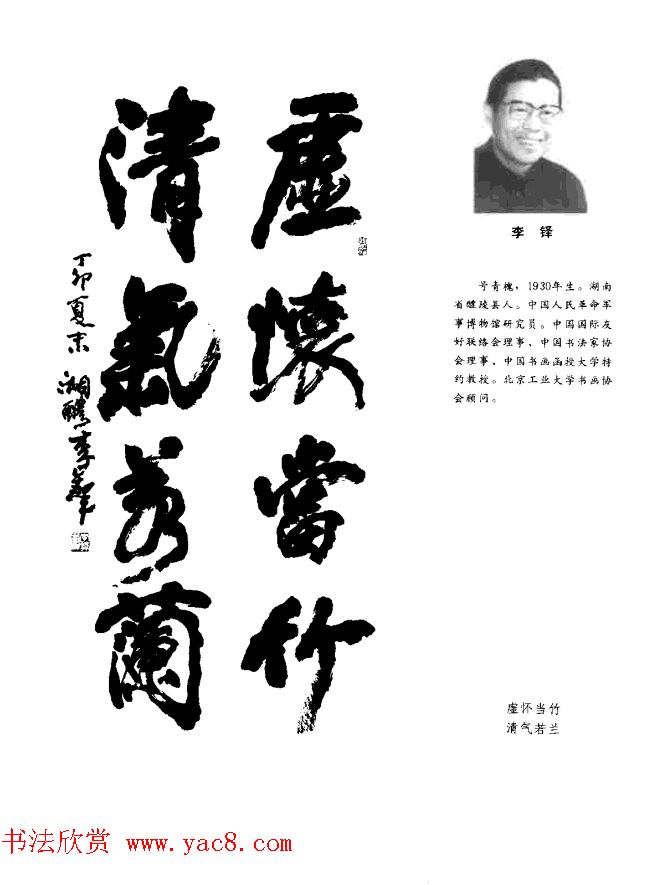 虚懷當竹
清氣若蘭
丁卯夏末 湘醴李鐸
李 铎
号青槐，1930年生。湖南
省醴陵县人。中国人民革命军
事博物馆研究员。中国国际友
好联络会理事、中国书法家协
会理事、中国书画函授大学特
约教授。北京工业大学书画协
会顾问。
虚怀当竹
清气若兰
书法欣赏 www.yac8.com